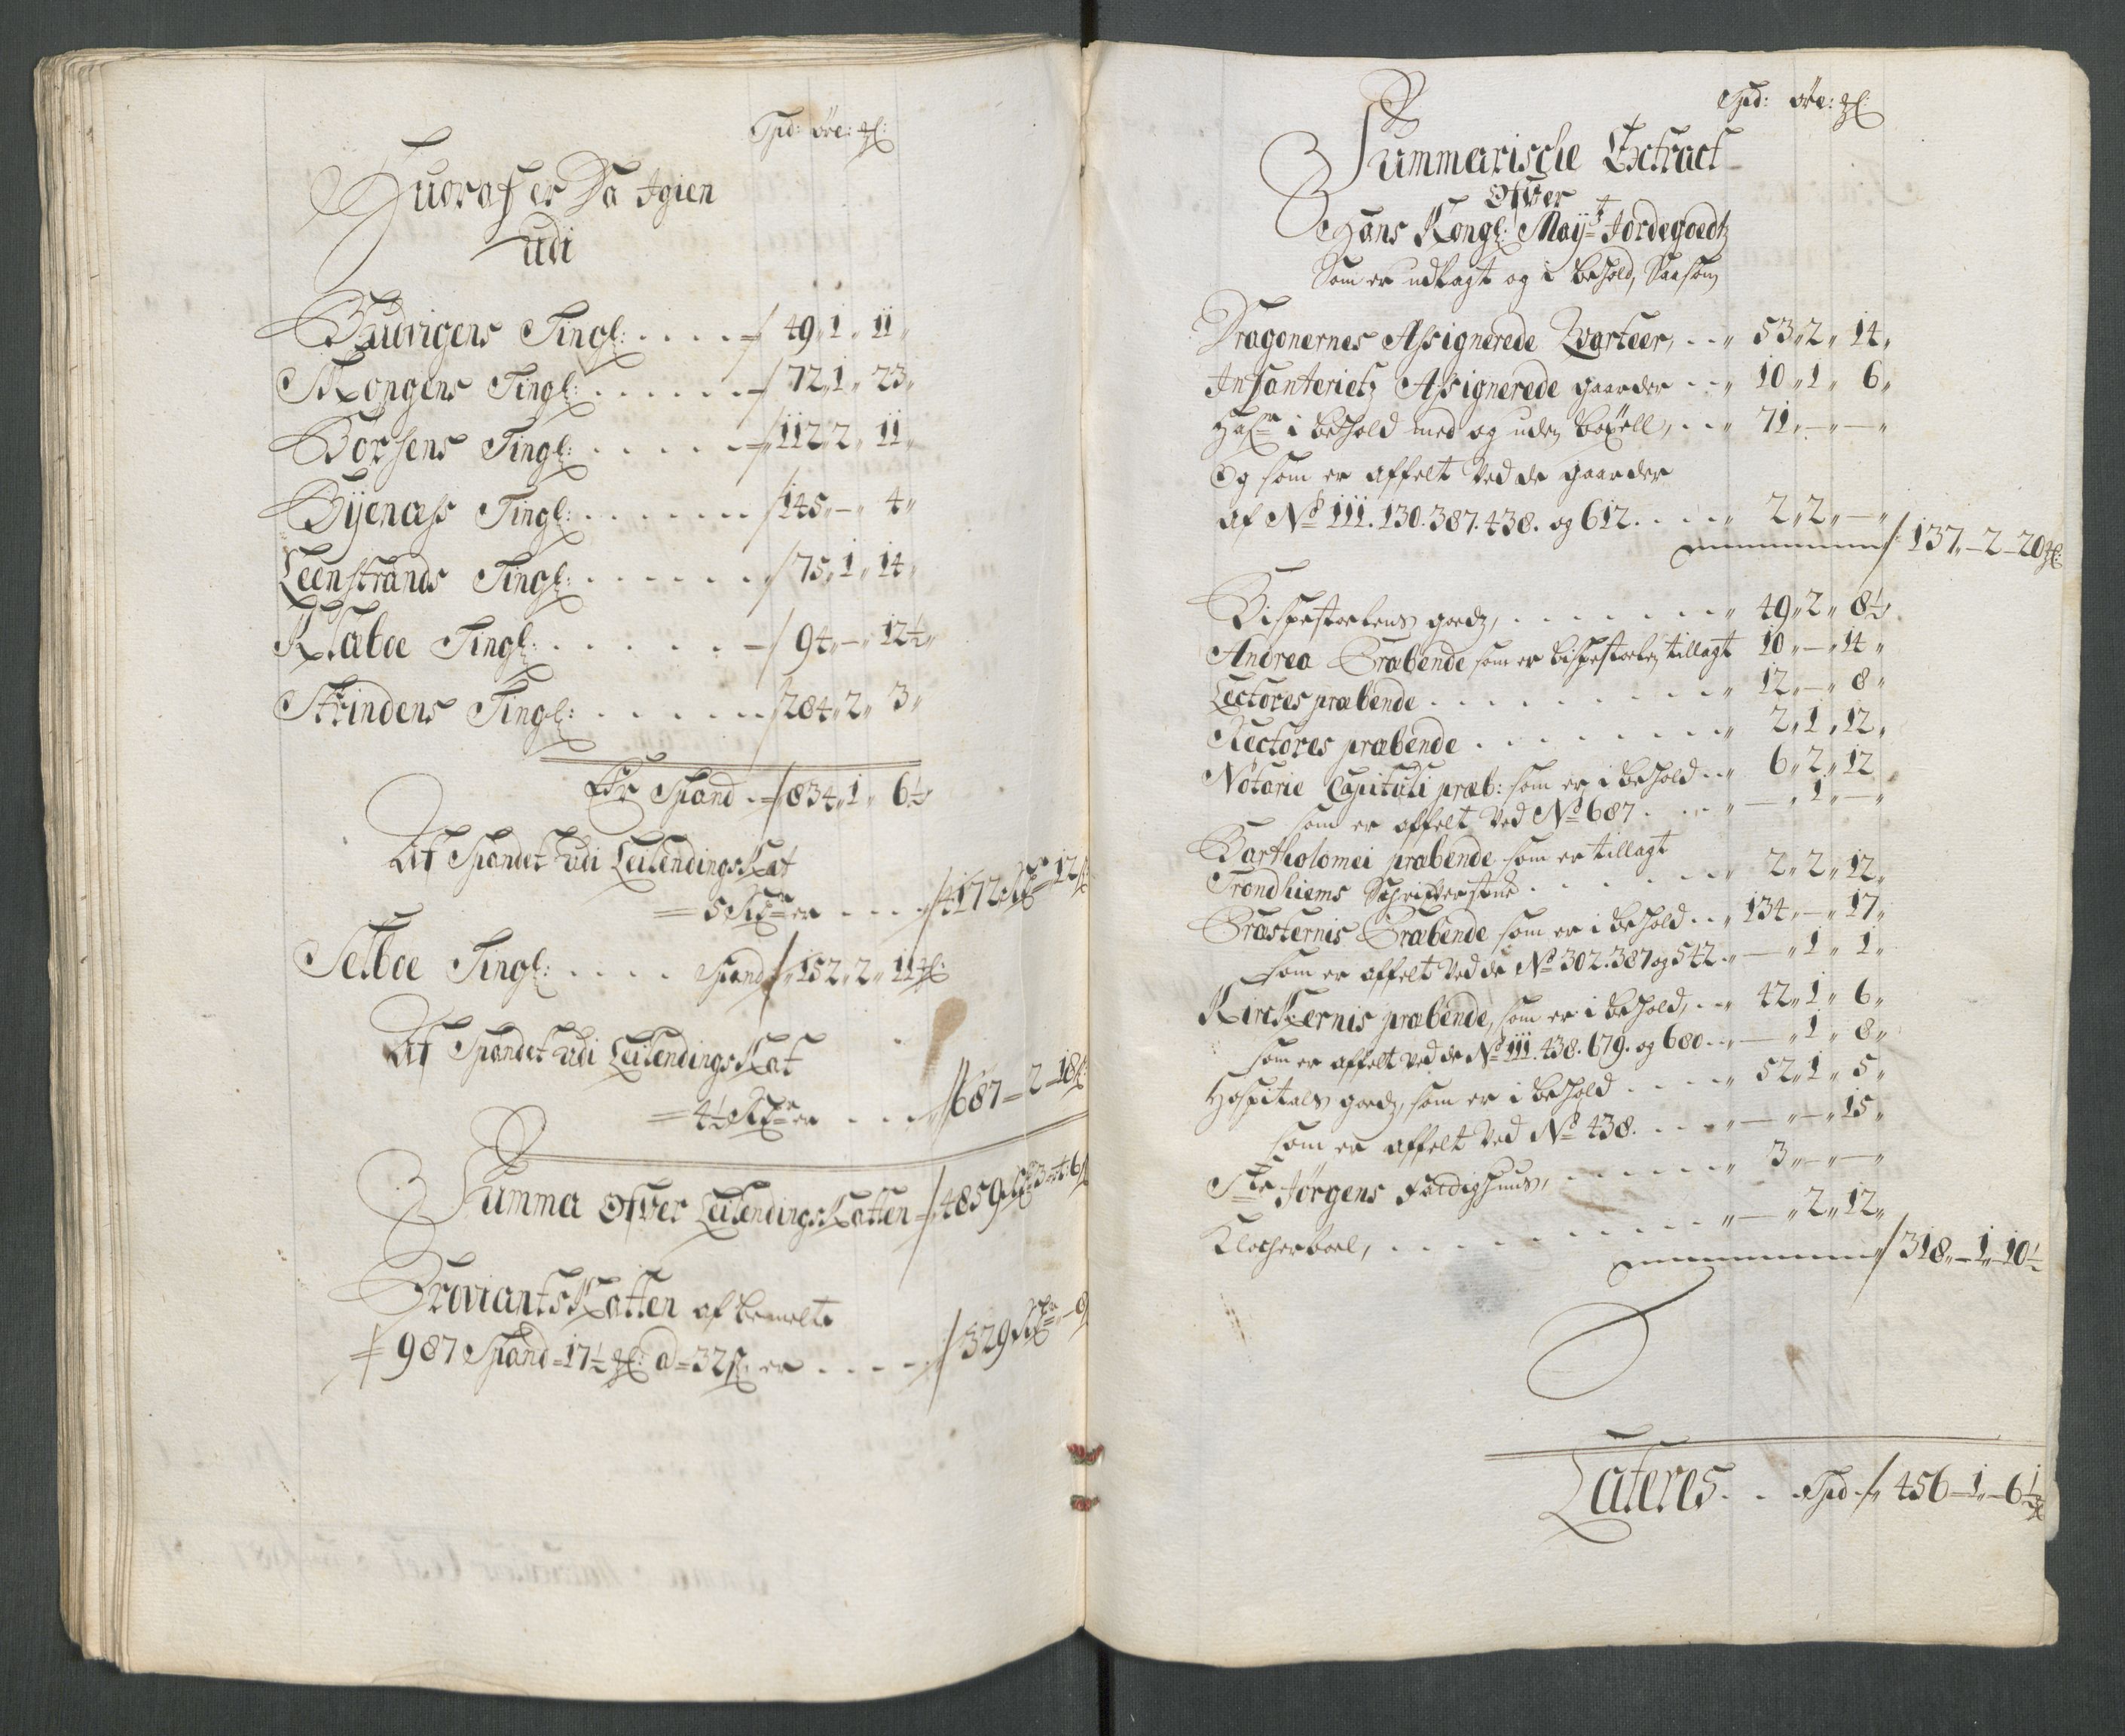 Spd: öre: gl:
Huoraf er Da Igien
udi
Budvigens Tingl: . . . . 49 " 1 " 11 "
Mongens Tingl: . . . . . . 72 " 1 " 23 "
Borsens Tingl: . . . . . 112 " 2 " 11 "
Byenæss Tingl: . . . . . . . 145 " — " 4 "
Leenstrands Tingl: . . . . . . 75 " 1 " 14 "
Klæboe Tingl: . . . . . . 94 " — " 12½ "
Strindens Tingl: . . . . . . 284 " 2 " 3 "
Er Spand . . 834 " 1 " 6½ "
Af Spandet udi LeilendingsKat
5 er . . . . 4172 — 12
Selboe Tingl: . . . . Spand 152 " 2 " 11 gl:
Af Spandet udi LeilendingsKat
4½ er . . . . 687 — 2 — 18
Summa Ofver LeilendingsKatten 4859 3 6
ProviantsKatten af bemelte
987 Spand 17½ gl: a 32 er . . . . . 329
Spd: öre: gl:
Summarische Extract
Ofver
Hans Kongl: Mayts Jordegoedtz
Som er udlagt og i behold, Saasom
Dragonernes Assignerede Qvarteer, . . " 53 " 2 " 14 "
Infanterietz Assignerede gaarder . . " 10 " 1 " 6 "
i behold med og uden böxell, . . " 71 " — " — "
Og som er affelt ved de gaarder
af No 111. 130. 387. 438. og 612. . . . . " 2 " 2 " — "
137 " — 2 — 20 gl:
Bispestoelens godz, . . . . . . . " 49 " 2 " 8½ "
Andrea Præbende som er bispestoelen tillagt 10 " — " 14 "
Lectores præbende . . . . . . . . . " 12 " — " 8 "
Rectores præbende . . . . . . . . " 2 " 1 " 12 "
Notarie Capituli præb: som er i behold . . " 6 " 2 " 12 "
som er affelt ved No 687 . . . . " — " 1 " — "
Bartholomei præbende som er tillagt
Trondhiems . . . . . . . " 2 " 2 " 12 "
Præsternis Præbende som er i behold . . " 134 " — " 17 "
som er affelt ved de No 302. 387 og 542 . " — " 1 " 1 "
Kirckernis præbende, som er i behold, . . " 42 " 1 " 6 "
som er affelt ved de No 111. 438. 679. og 680 . . " — " 1 " 8 "
Hospitals godz, som er i behold . . . . . " 52 " 1 " 5 "
som er affelt ved No 438. . . . . " — " — " 15 "
Ste Jörgens Fattighuus, . . . . . . " 3 " — " — "
Klocherboel, . . . . . . . . . . " — " 2 " 12 "
318 " — 1 " — 10½
Lateres . . . Spd 456 — 1 " — 6½ gl